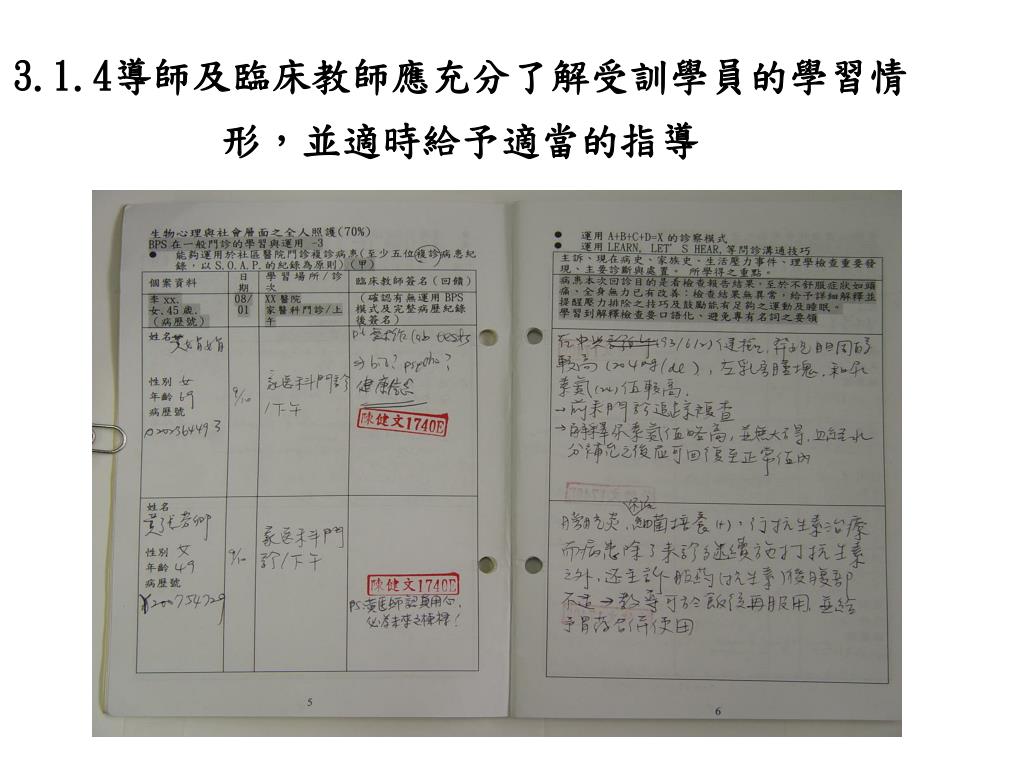 3.1.4導師及臨床教師應充分了解受訓學員的學習情
形，並適時給予適當的指導
生物心理與社會層面之全人照護(70%)
BPS 在一般門診的學習與運用 -3
● 能夠運用於社區醫院門診複診病患(至少五位複診病患紀
錄，以 S.O.A.P.的紀錄為原則) (甲)
個案資料
日期
學習場所/診次
臨床教師簽名(回饋)
李 xx.
女.45 歲.
(病歷號)
08/01
XX 醫院
家醫科門診/上午
(確認有無運用 BPS
模式及完整病歷紀錄
後簽名)
姓名
性別 女
年齡 69
病歷號
9/10
家医科門診
/下午
健康信念
陳健文1740E
姓名
性別 女
年齡 49
病歷號
9/10
家医科門
診/下午
陳健文1740E
PS:黃医師認真用心,
必為未來之棟樑!
5
● 運用 A+B+C+D=X 的診察模式
● 運用 LEARN, LET'S HEAR,等問診溝通技巧
主訴、現在病史、家族史、生活壓力事件、理學檢查重要發
現、主要診斷與處置。 所學得之重點。
病患本次回診目的是看檢查報告結果,至於不舒服症狀如頭
痛、全身無力已有改善;檢查結果無異常,給予詳細解釋並
提醒壓力排除之技巧及鼓勵能有足夠之運動及睡眠。
學習到解釋檢查要口語化、避免專有名詞之要領
較高(204mg/dl),左乳房腫塊,和尿
素氮(24)值較高.
→前來門診追蹤複查
→解釋尿素氮值略高,並無大礙,
分補充之後應可回復至正常值內
膀胱炎,細菌培養(+),行抗生素治療
而病患除了來診後繼續施打抗生素
之外,還主訴服药(抗生素)後腹部
不適→教導可於飯後再服用,並給
予胃药合併使用
6